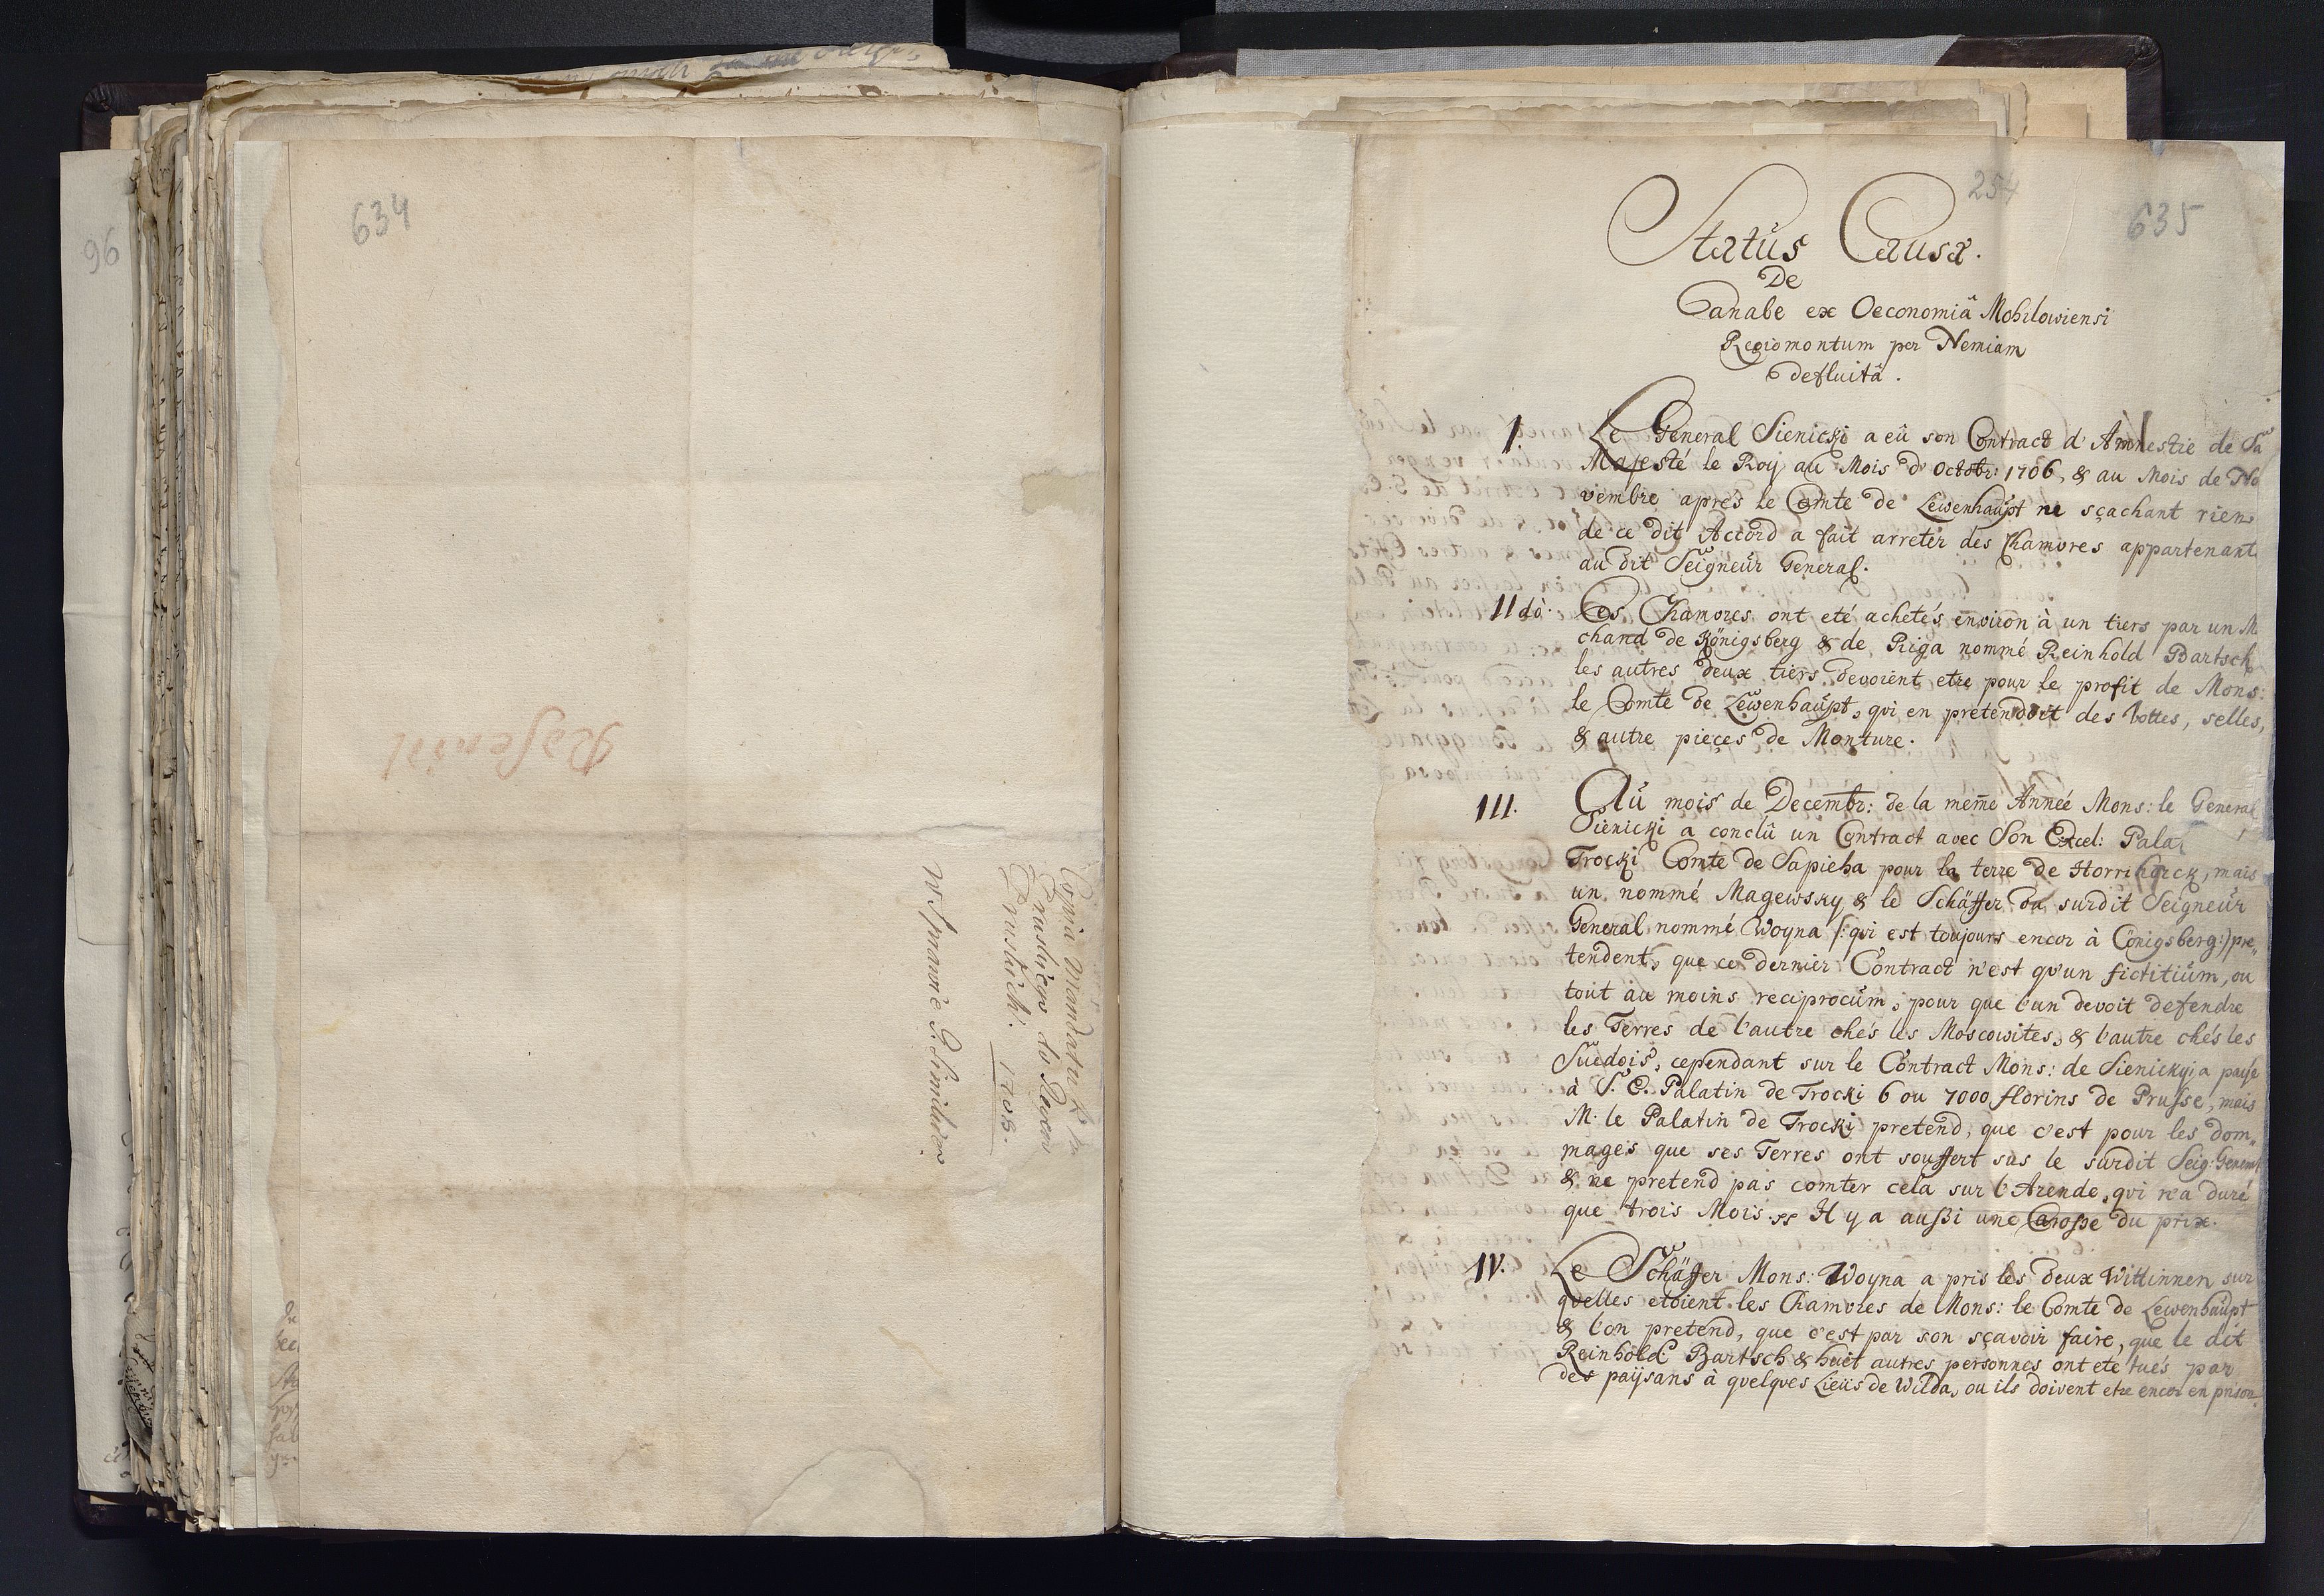 96
634
Copia Mandatu K
Pruskiego do Rewer
Pruskich. 1708.
W sprawie P.
254
635
Status Causæ.
De
Canabe ex Oeconomiâ Mohilowiensi
Regiomontum per Nemiam
defluitâ.
I. Le General Sienicki a eû son Contract d'Amnestie de Sa
Majesté le Roy au Mois d'Octobr: 1706, & au Mois de No
vembre aprés le Comte de Lewenhaupt ne sçachant rien
de ce dit Accord a fait arreter des Chamvres appartenant
au dit Seigneur General.
IIdò. Ces Chamvres ont eté achetés environ à un tiers par un M
chand de Königsberg & de Riga nommé Reinhold Bartsch
les autres deux tiers devoient etre pour le profit de Mons:
le Comte de Lewenhaupt, qvi en pretendoit des bottes, selles,
& autre pieçes de Monture.
III. Au mois de Decembr: de la méme Année Mons: le General
Sienicki a conclû un Contract avec Son Excel: Pala
Trocki Comte de Sapieha pour la terre de Horrihorck, mais
un nommé Magewsky & le Schäffer du surdit Seigneur
General nommé Woyna /: qvi est toujours encor à Cönigsberg:/ pre„
tendent, que ce dernier Contract n'est qv'un fictitium, ou
tout au moins reciprocum, pour que l'un devoit defendre
les Terres de l'autre chés les Moscowites, & l'autre chés les
Suedois, cependant sur le Contract Mons: de Sienickyi a payé
à S. E. Palatin de Trocki 6 ou 7000 florins de Prusse, mais
M. le Palatin de Trocki pretend, que c'est pour les dom„
mages que ses Terres ont souffert sus le surdit Seig: General
& ne pretend pas comter cela sur l'Arende, qvi n'a duré
que trois Mois. Il y a aussi une Carosse du prix.
IV. Le Schäffer Mons: Woyna a pris les deux Wittinnen sur
qvelles etoient les Chamvres de Mons: le Comte de Lewenhaupt
& l'on pretend, que c'est par son sçavoir faire, que le dit
Reinhold Bartsch & huit autres personnes ont eté tués par
des paysans à qvelqves Lieus de Wilda, ou ils doivent etre encor en prison.